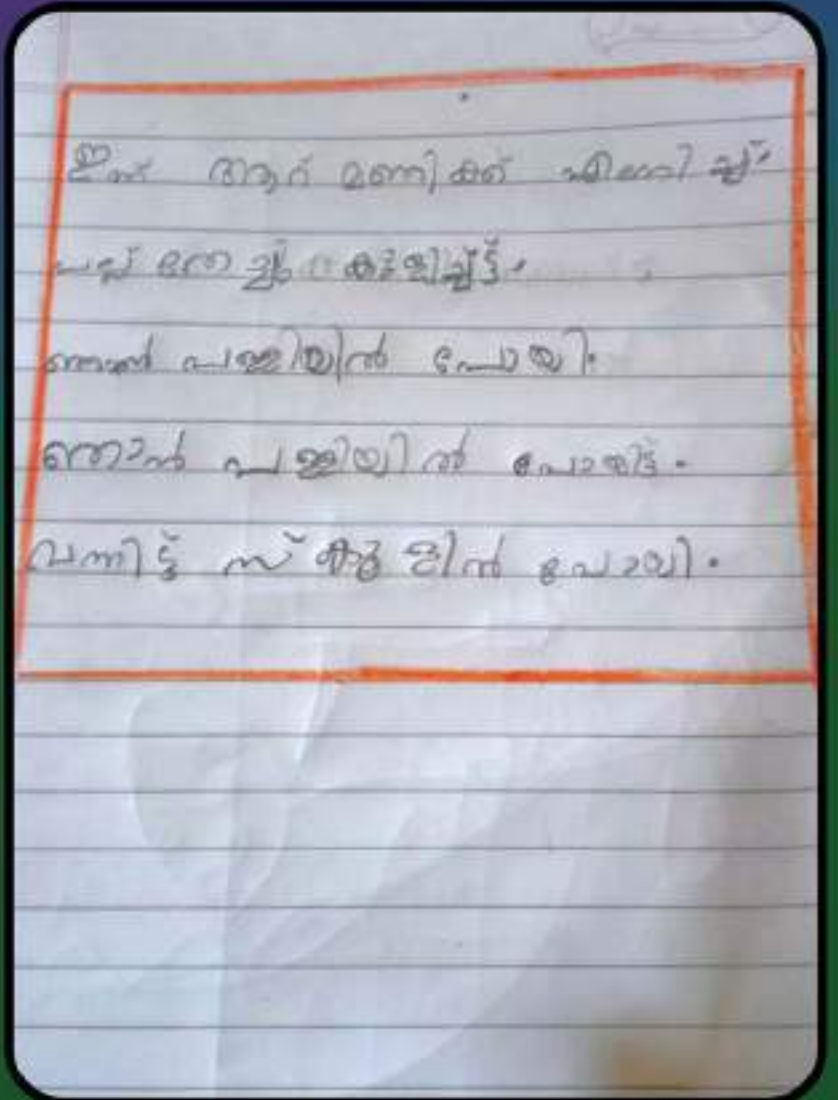 ഇന്ന് ആറ് മണിക്ക്
പല്ല് തേച്ചു കുളിച്ചിട്ട്.
ഞാൻ പള്ളിയിൽ പോയി.
ഞാൻ പള്ളിയിൽ പോയിട്ട്.
വന്നിട്ട് സ്കൂളിൽ പോയി.